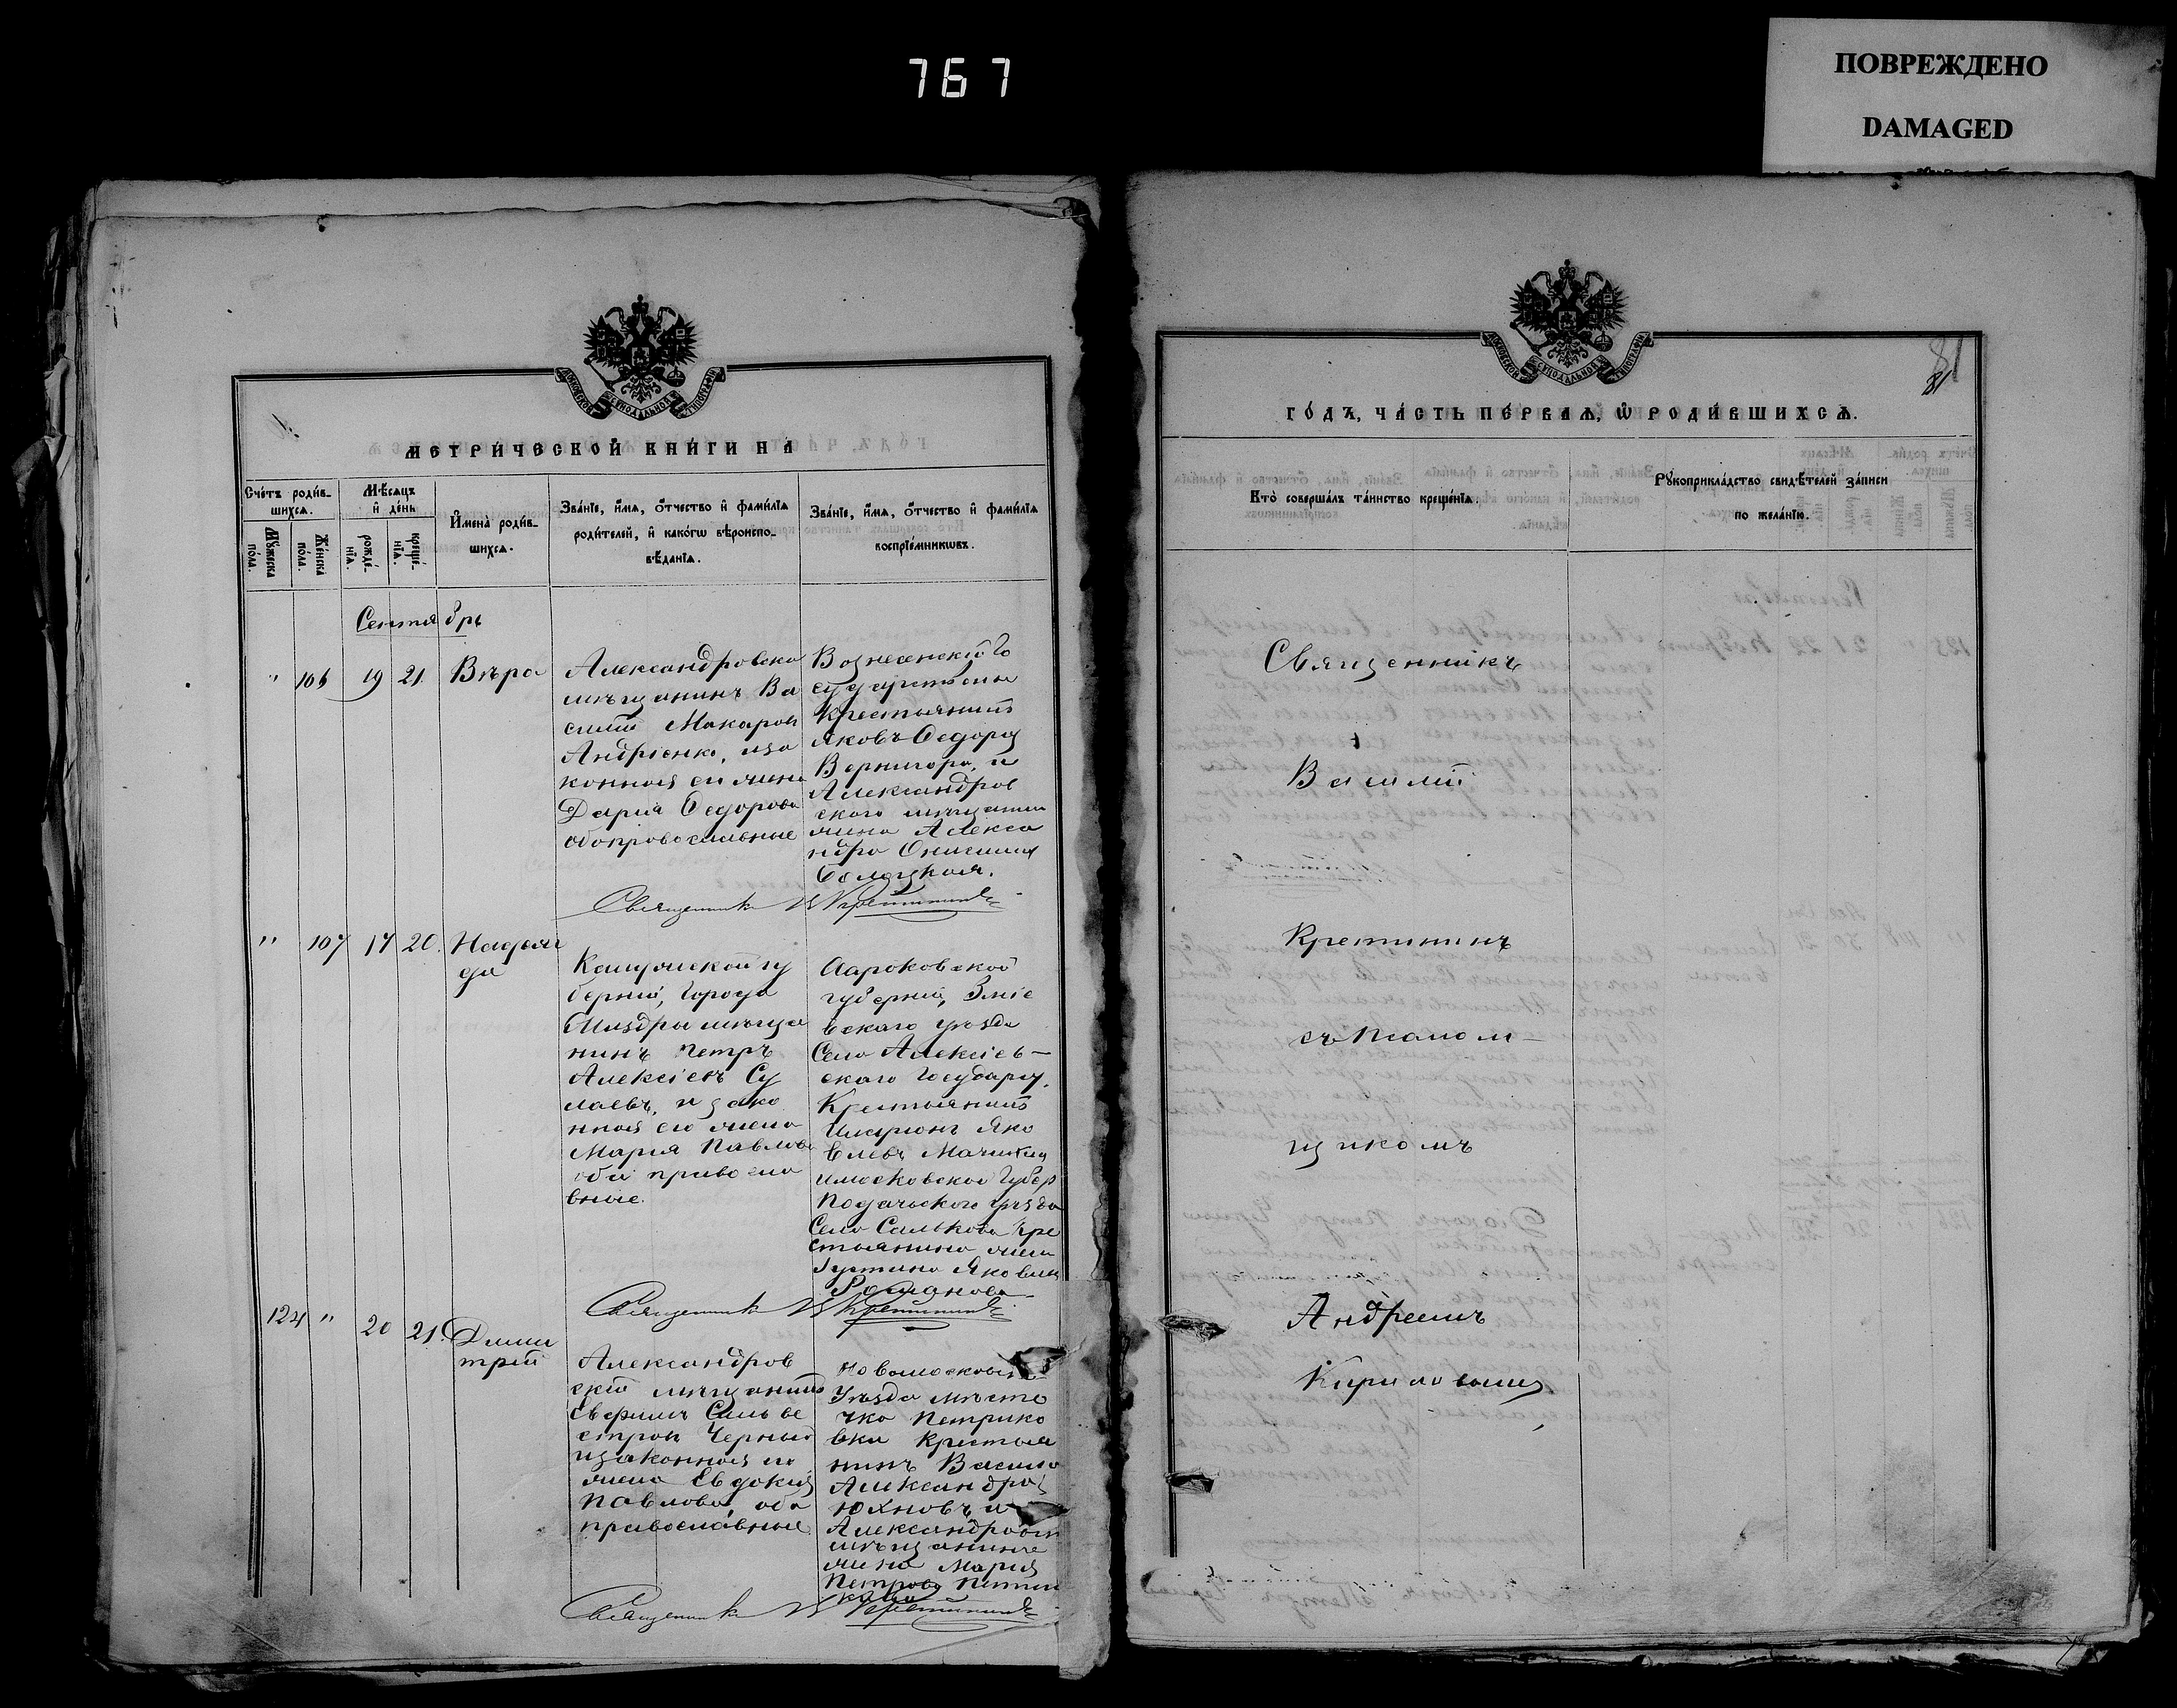 767
ПОВРЕЖДЕНО
DAMAGED
МЕТРИЧЕСКОЙ КНИГИ НА
Счетъ родив-
шихся.
Мужеска
пола.
Женска
пола.
Мѣсяцъ
и день
рожде-
нія.
креще-
нія.
Имена родив-
шихся.
Званіе, имя, отчество и фамилія
родителей, и какогѡ вѣроиспо-
вѣданія.
Званіе, имя, отчество и фамилія
воспріемниковъ.
Сентябрь
" 106 19 21. Вѣра
Александровскій
мѣщанинъ Ва
силій Макаровъ
Андріенко, иза
конная его жена
Дарія Ѳедорова
оба православные
Вознесенскій Го
сударствен
Крестьянинъ
Яковъ Ѳедоровъ
Вернигора, и
Александров
ского мѣщанина
жена Алекса
ндра
Священникъ В Крешининъ
" 107 17 20. Надеж
да
губерніи, города
Мѣщанинъ
нинъ Петръ
Алексіевъ Су
лаевъ, и зако
нная его жена
Марія Павлова
оба правосла
вные.
губерніи, Зміе
вского уѣзда
Село Алексіев-
ского Государ.
Крестьянинъ
Иларіонъ Яко
влевъ
и московской Губер
Подольского уѣзда
Село Сальково Кре
стьянина жена
Іустина Яковлев
Романова
Священникъ В Крешининъ
124 " 20 21. Дими
трій
Александров
скій мѣщанинъ
Евфимъ Сильве
стровъ Черный
изаконная его
жена Евдокія
Павлова, оба
православные
Новомосковск
Уѣзда мѣсте
чка Петрико
вки Крестья
нинъ Василій
Александров
Юхновъ, и
Александровск
мѣщанина
жена Марія
Петрова
Священникъ В Крешининъ
ГОДЪ, ЧАСТЬ ПЕРВАЯ, Ѡ РОДИВШИХСЯ.
81
81
Кто совершалъ таинство крещенія.
Рукоприкладство свидѣтелей записи
по желанію.
Священникъ
Василій
Крешининъ
съ Псалом-
щикомъ
Андреемъ
Кириловымъ